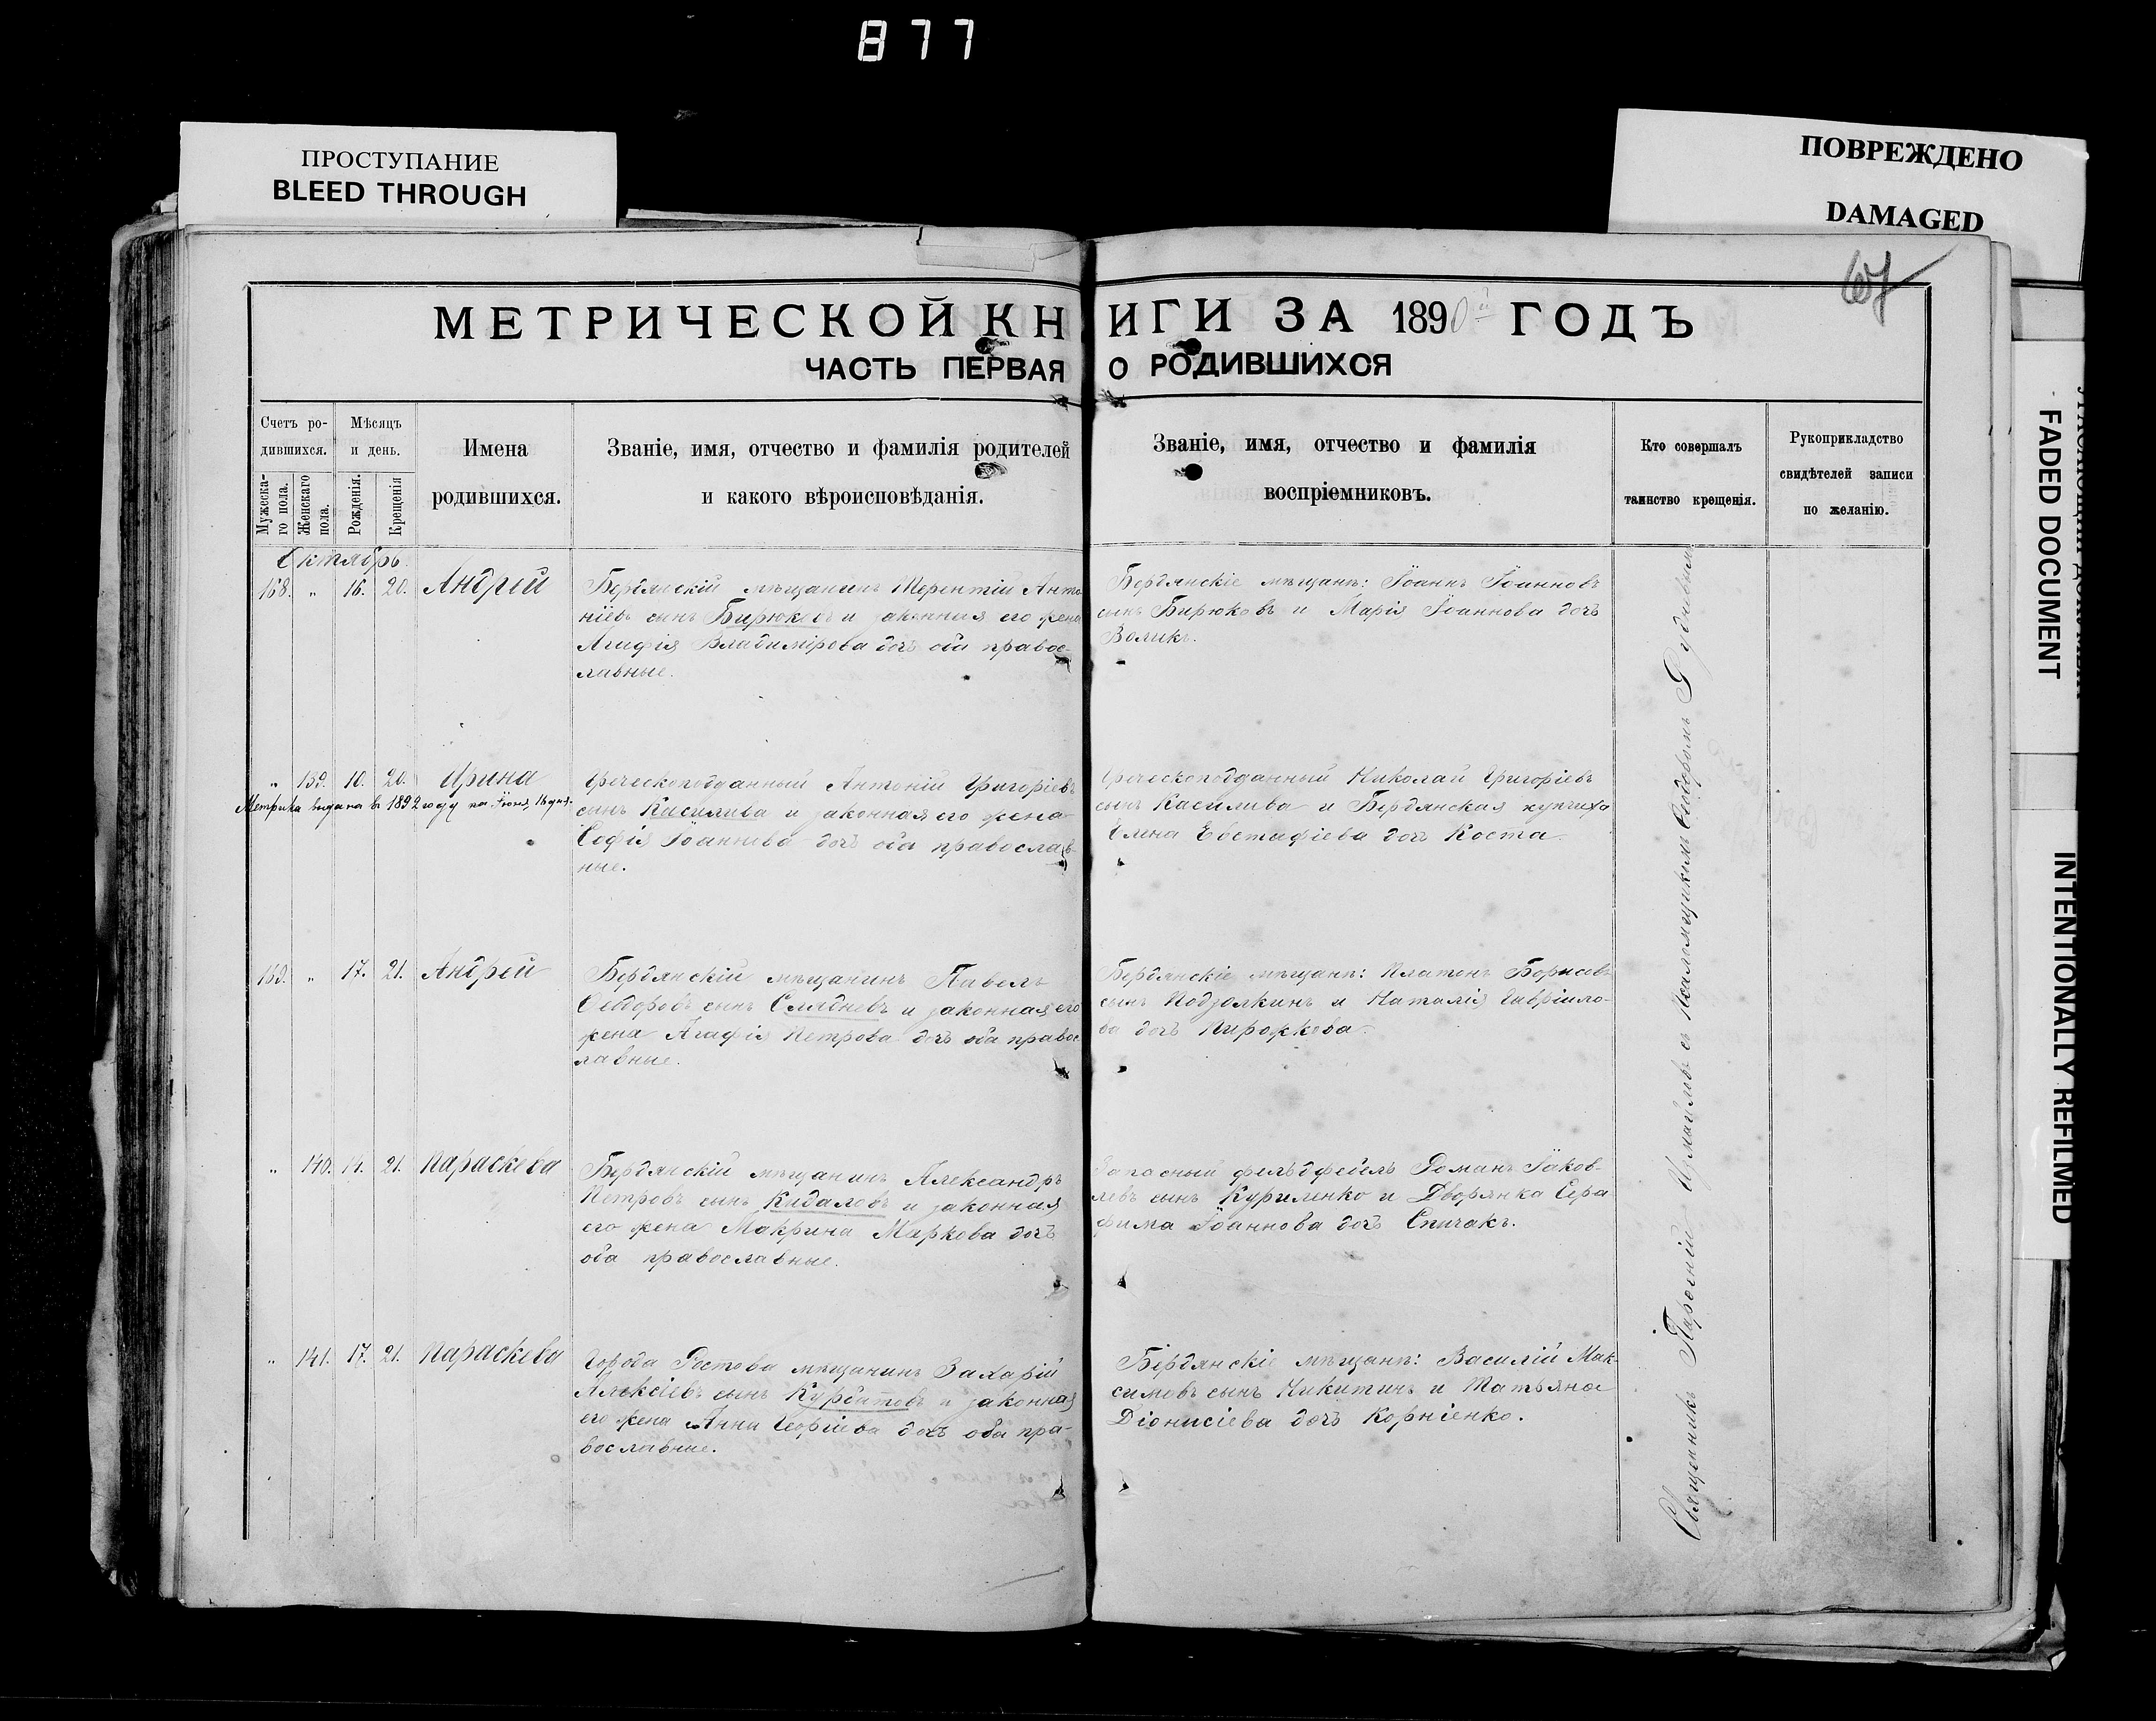 877
ПРОСТУПАНИЕ
BLEED THROUGH
ПОВРЕЖДЕНО
DAMAGED
FADED DOCUMENT
INTENTIONALLY REFILMED
МЕТРИЧЕСКОЙ КНИГИ ЗА 1890й ГОДЪ
ЧАСТЬ ПЕРВАЯ О РОДИВШИХСЯ
Счетъ ро-
дившихся.
Мужеска-
го пола.
Женскаго
пола.
Мѣсяцъ
и день.
Рожденія.
Крещенія
Имена
родившихся.
Званіе, имя, отчество и фамилія родителей
и какого вѣроисповѣданія.
Званіе, имя, отчество и фамилія
воспріемниковъ.
Кто совершалъ
таинство крещенія.
Рукоприкладство
свидѣтелей записи
по желанію.
Октябрь.
168. " 16. 20. Андрій
Бердянскій мѣщанинъ Терентій Анто
ніевъ сынъ Бирюковъ и законная его жена
Агафія Владимірова дочь оба правос-
лавные.
Бердянскіе мѣщане: Іоаннъ Іоанновъ
сынъ Бирюковъ и Марія Іоаннова дочь
Воликъ.
" 139. 10. 20. Ирина
Метрика выдана въ 1892 году на Іюня, 16 дня.
Греческоподданный Антоній Григоріевъ
сынъ Касилива и законная его жена
Софія Іоаннова дочь оба православ-
ные.
Греческоподданный Николай Григоріевъ
сынъ Касилива и Бердянская купчиха
Елена Евстафіева дочь Коста.
169. " 17. 21. Андрей
Бердянскій мѣщанинъ Павелъ
Ѳеодоровъ сынъ Слядневъ и законная его
жена Агафія Петрова дочь оба правос
лавные.
Бердянскіе мѣщане: Платонъ Борисовъ
сынъ Подзолкинъ и Наталія Гавріило-
ва дочь Пирожкова.
" 140. 14. 21. Параскева
Бердянскій мѣщанинъ Александръ
Петровъ сынъ Кидаловъ и законная
его жена Макрина Маркова дочь
оба православные.
Запасный фельдфебель Романъ Іаков-
левъ сынъ Куриленко и Дворянка Сера
фима Іоаннова дочь Спичакъ.
" 141. 17. 21. Параскева
Города Ростова мѣщанинъ Захарій
Алексіевъ сынъ Курбатовъ и законная
его жена Анна Георгіева дочь оба пра-
вославные.
Бердянскіе мѣщане: Василій Мак-
симовъ сынъ Никитинъ и Татьяна
Діонисіева дочь Корніенко.
Священникъ Парѳеній съ Псаломщикомъ Ѳеодоромъ